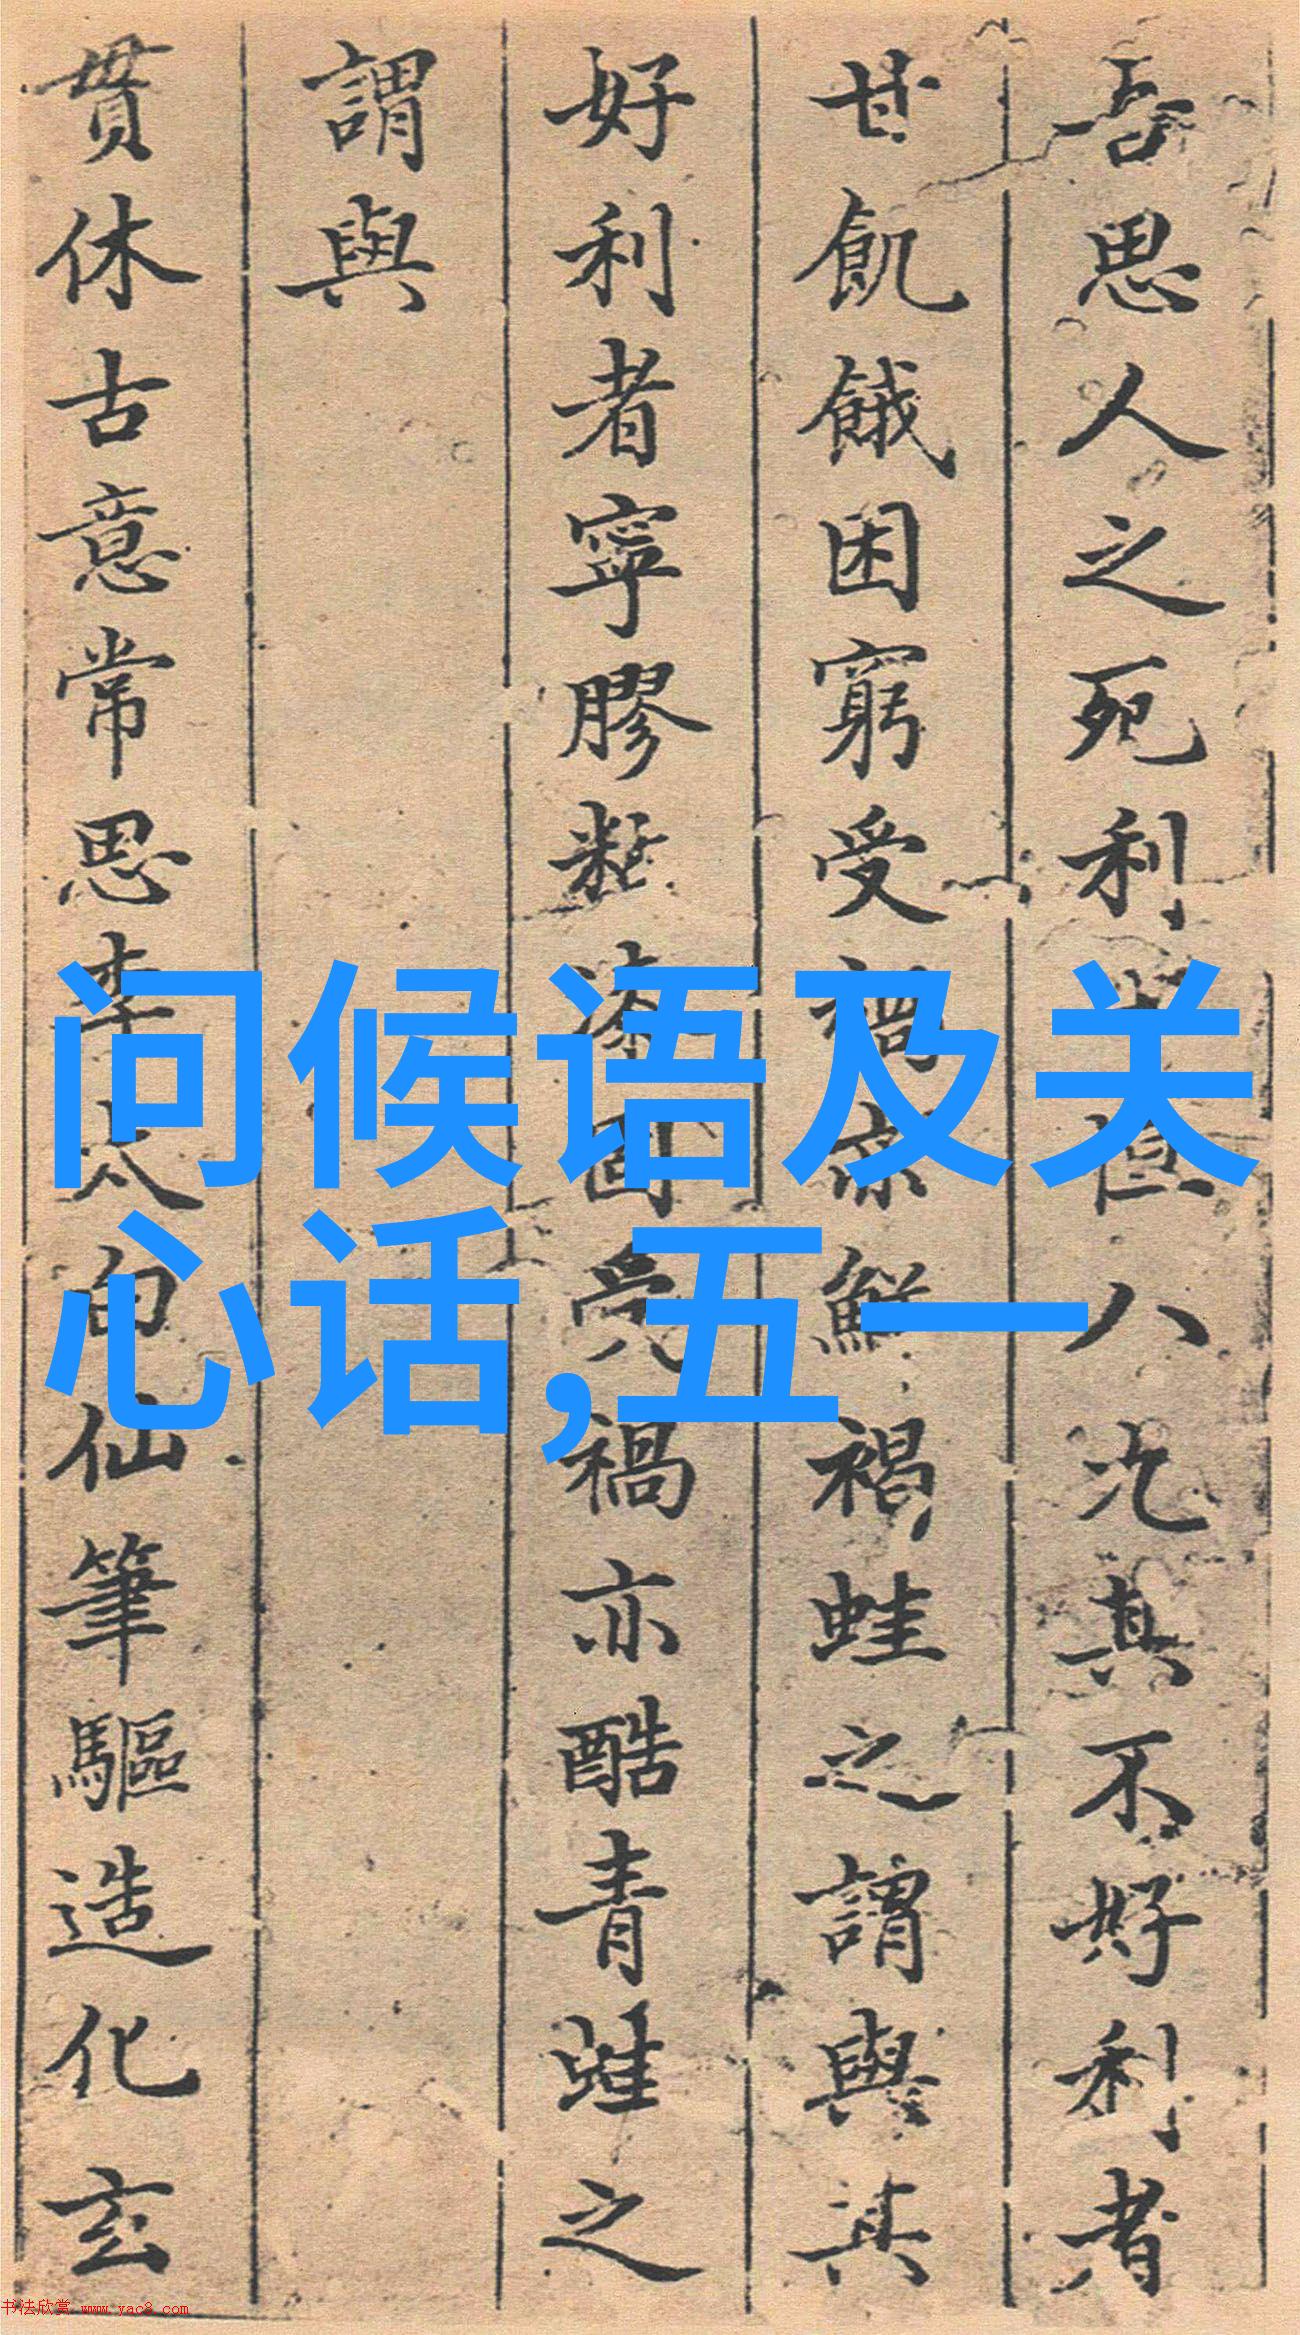 吾思人之死利恒八九其不好利者
甘飢餓困窮受禍亦鮮褐蛙之謂與其
好利者寧膠黏漆固受禍亦酷青蛙之
謂與
貫休古意常思李太白仙筆驅造化玄
问候语及关
心话,五一
书法欣赏 www.yac8.com